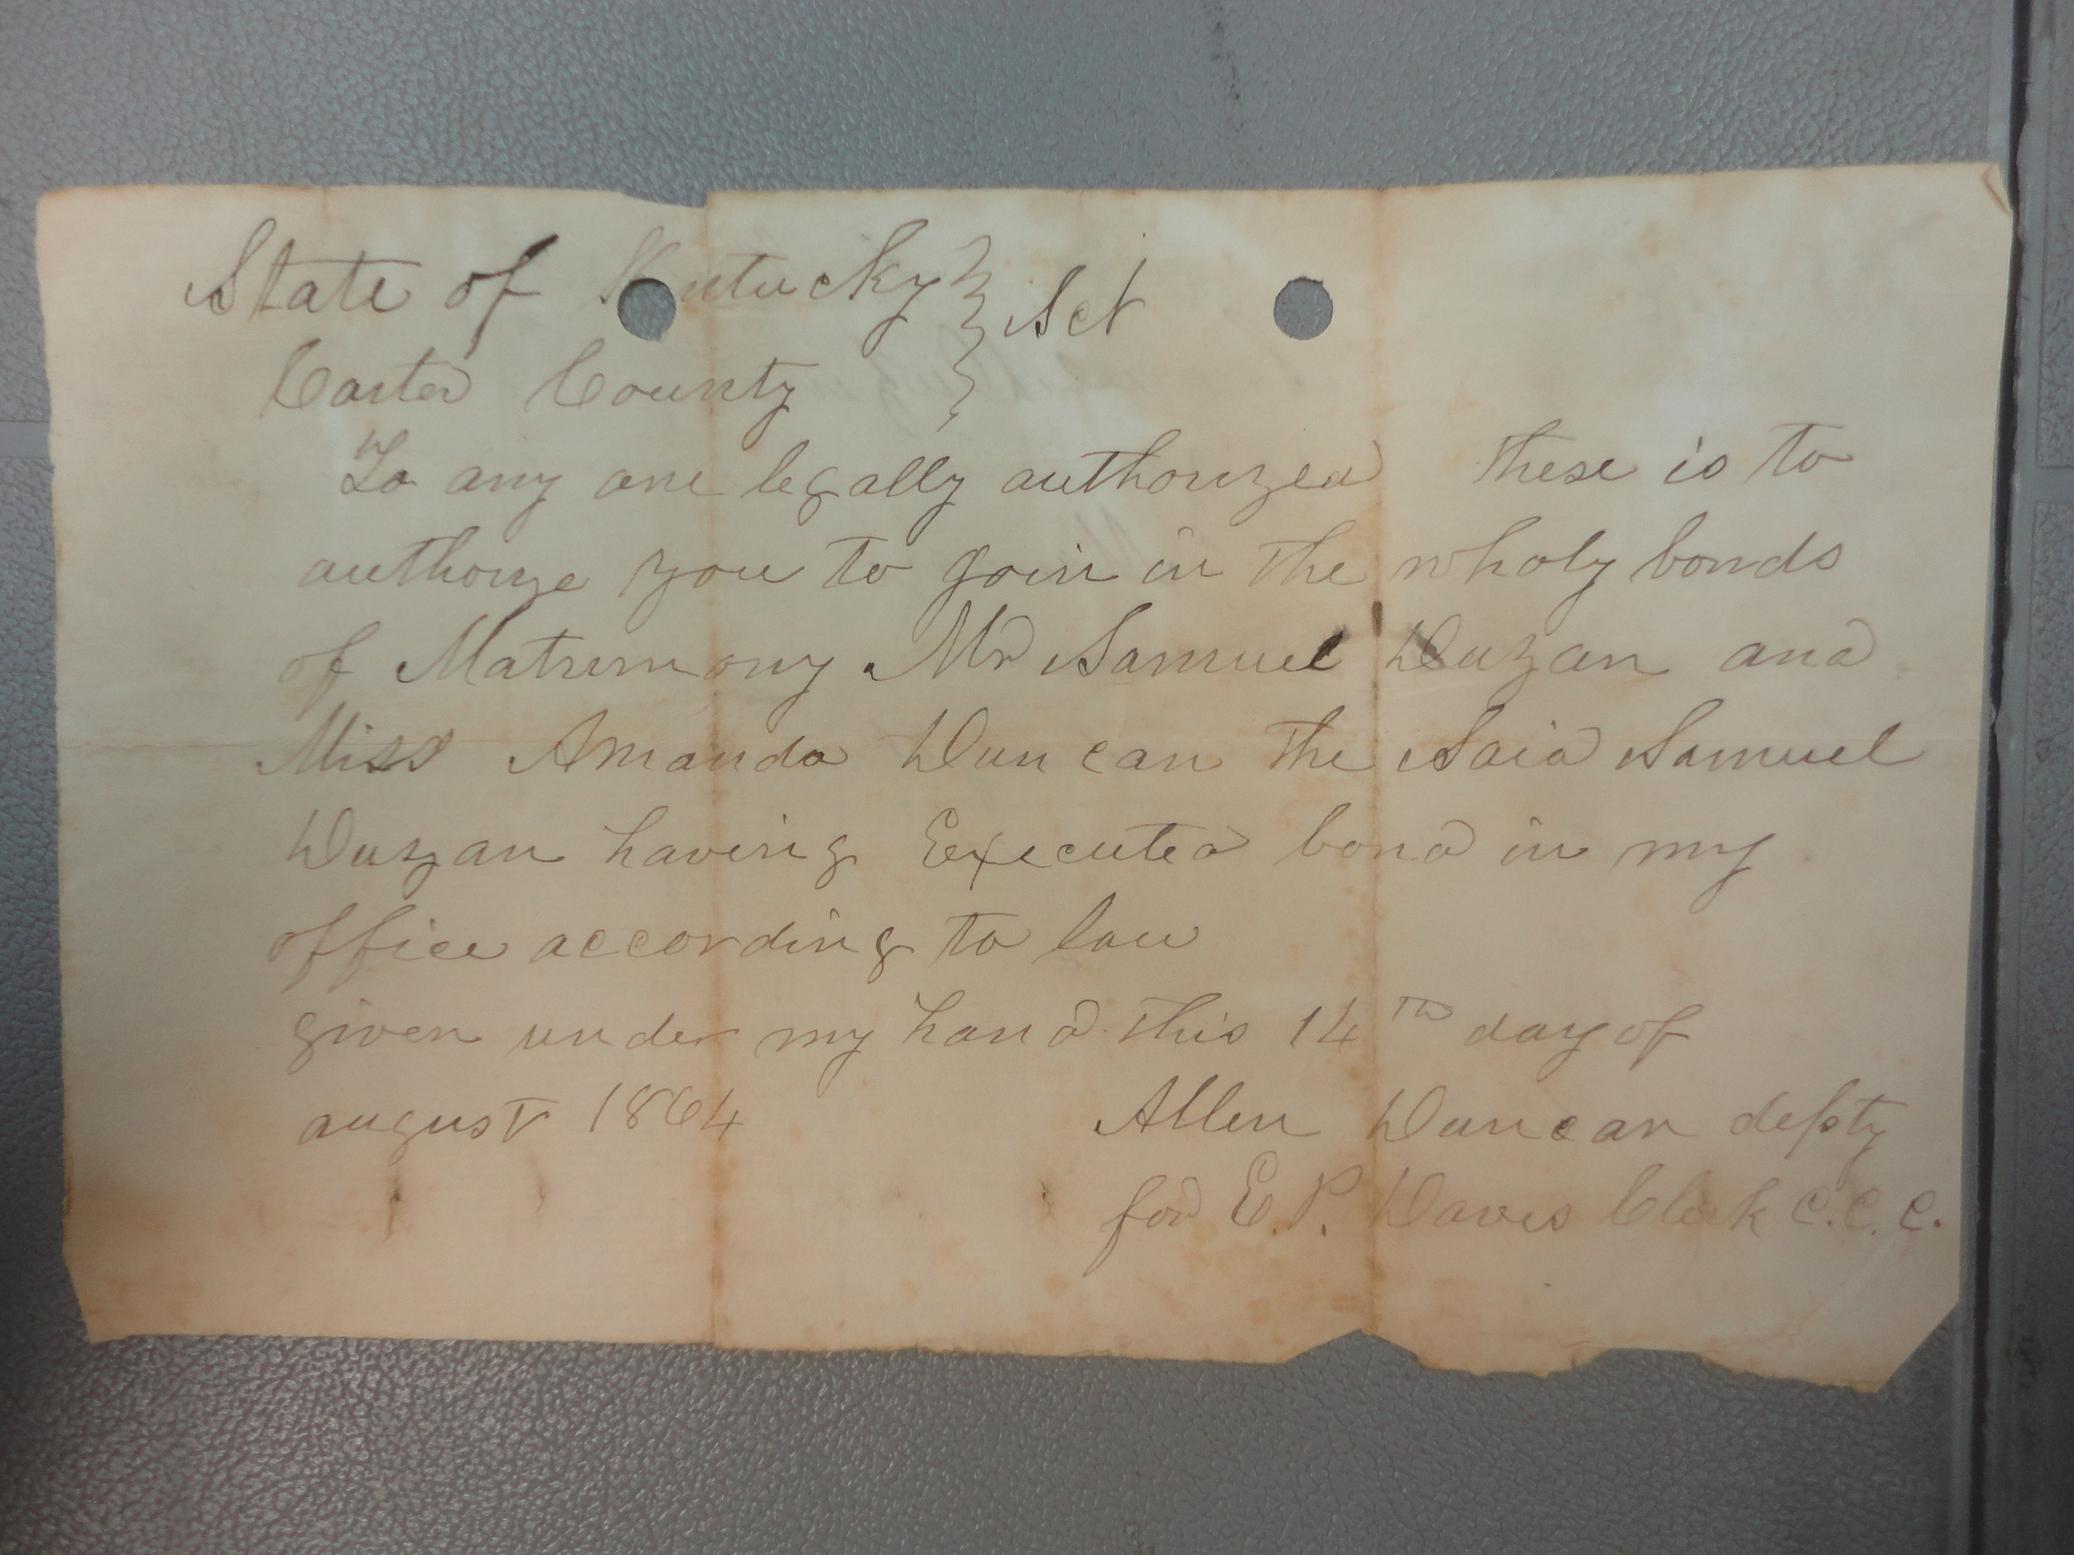 State of Kentucky } Sct
Carter County }
To any one legally authorized these is to
authorize you to goin in the wholy bonds
of Matrimony Mr Samuel Duzan and
Miss Amanda Duncan the Said Samuel
Duzan having Executed bond in my
office according to law
given under my hand this 14th day of
august 1864
Allen Duncan depty
for E. P. Davis Clerk C. C. C.